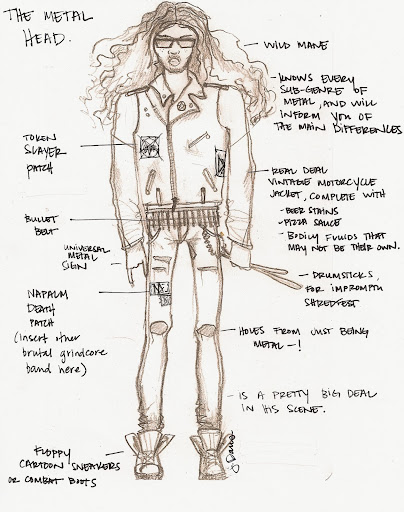 THE METAL
HEAD.
WILD MANE
-KNOWS EVERY
SUB-GENRE OF
METAL, AND WILL
INFORM YOU OF
THE MAIN DIFFERENCES
TOKEN
SLAYER
PATCH
REAL DEAL
VINTAGE MOTORCYCLE
JACKET, COMPLETE WITH
-BEER STAINS
-PIZZA SAUCE
-BODILY FLUIDS THAT
MAY NOT BE THEIR OWN.
BULLET
BELT
UNIVERSAL
METAL
SIGN
-DRUMSTICKS,
FOR IMPROMPTU
SHREDFEST
NAPALM
DEATH
PATCH
(insert other
brutal grindcore
band here)
HOLES FROM JUST BEING
METAL-!
-IS A PRETTY BIG DEAL
IN HIS SCENE.
FLOPPY
CARTOON SNEAKERS
OR COMBAT BOOTS